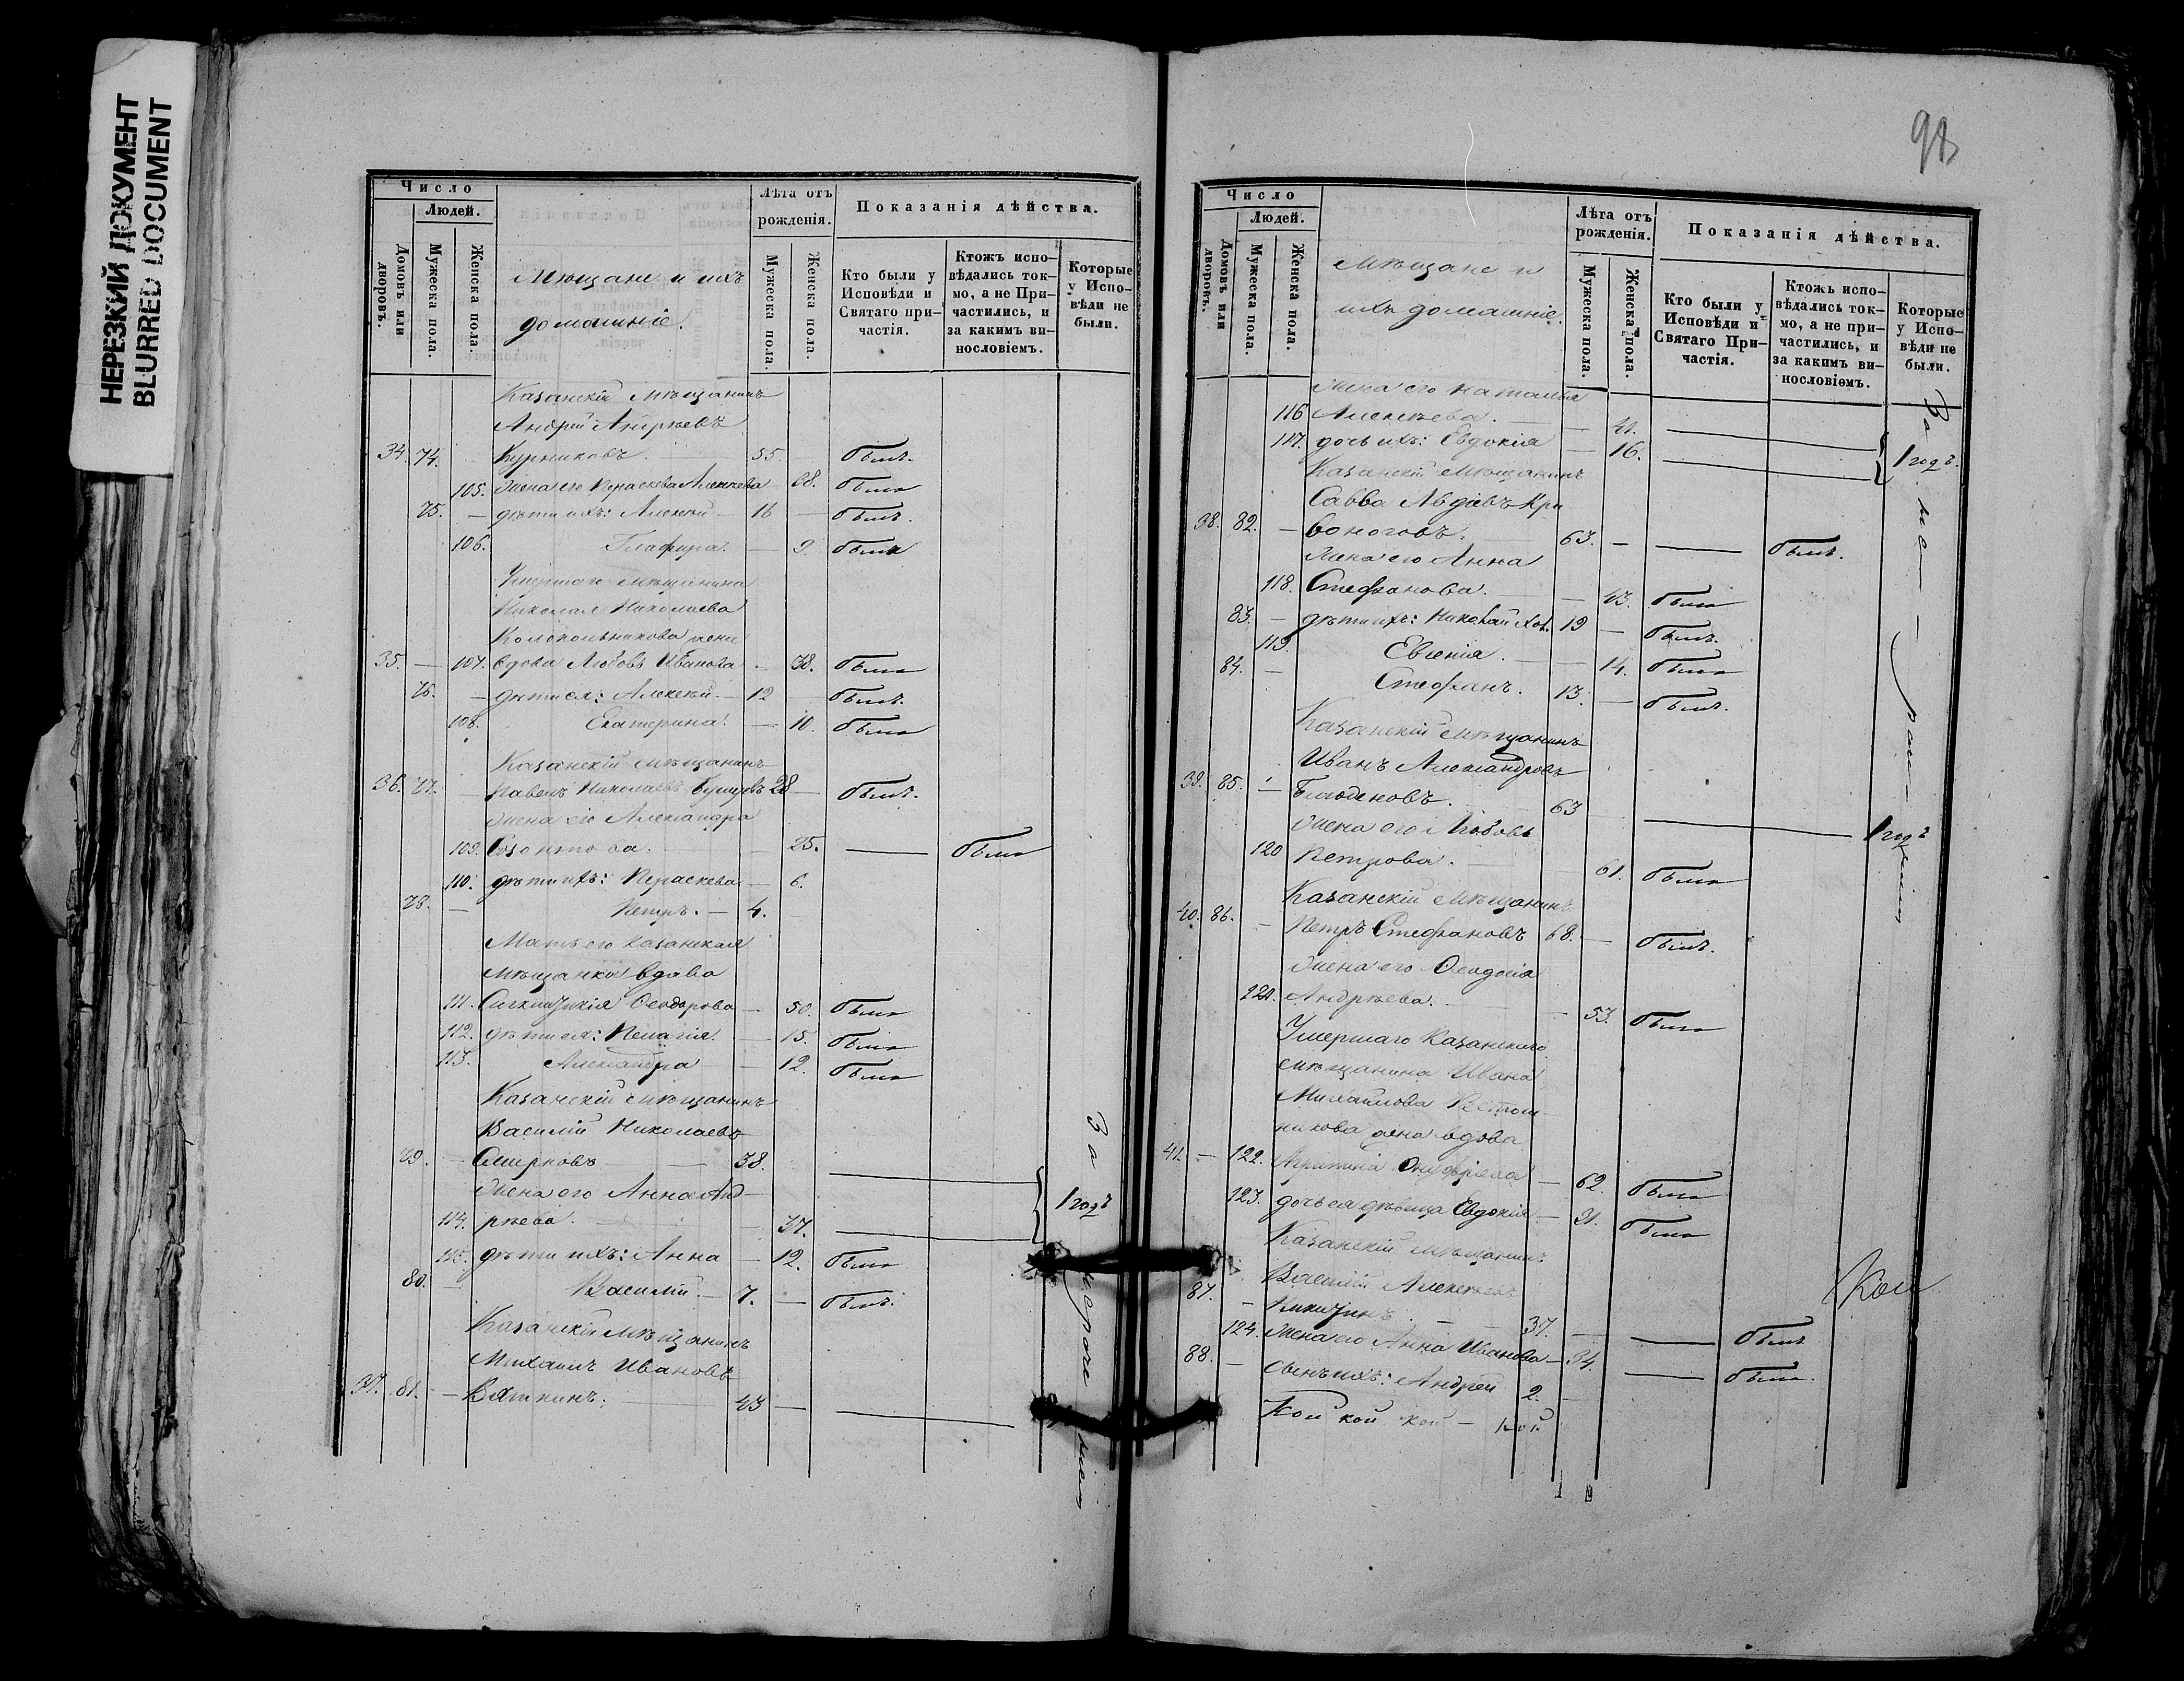 НЕРЕЗКИЙ ДОКУМЕНТ
BLURRED DOCUMENT
Число
Людей.
Домовъ или дворовъ.
Мужеска пола.
Женска пола.
Мѣщане и ихъ
домашніе.
Лѣта отъ рожденія.
Мужеска пола.
Женска пола.
Показанія дѣйства.
Кто были у Исповѣди и Святаго причастія.
Ктожъ исповѣдались токмо, а не Причастились, и за какимъ винословіемъ.
Которые у Исповѣди не были.
Казанскій мѣщанинъ
Андрей Андреевъ
34. 74. Курниковъ. 55. былъ.
105. жена его Параскева Алексѣева 68. была
75. — дѣти ихъ: Алексѣй — 16 — былъ.
106. Глафира. — 9. была
мѣщанина
Николая Николаева
Колокольникова жена
35. — 107. вдова Любовь Иванова. 38. была
76. — дѣти ея: Алексѣй. — 12 — былъ.
108. Екатерина. — 10. была
Казанскій мѣщанинъ
36. 77. — Павелъ Николаевъ 28 — былъ.
жена его Александра
109. 25. — была
110. дѣти ихъ: Параскева — 6.
78. — Петръ. — 4.
Мать его казанская
мѣщанка вдова
111. Ѳеодорова — 50. была
112. дѣти ея: Пелагія. — 15. была
113. Александра — 12. была
Казанскій мѣщанинъ
Василій Николаевъ
79. — Смирновъ — 38.
жена его Анна Анд-
114. рѣева. — 37. — 1 годъ
115. дѣти ихъ: Анна — 12. была
80. — Василій. — 7. — былъ.
Казанскій мѣщанинъ
Михаилъ Ивановъ
37. 81. — Вяткинъ. 43 —
За нерачениемъ
98
Число
Людей.
Домовъ или дворовъ.
Мужеска пола.
Женска пола.
Мѣщане и
ихъ домашніе.
Лѣта отъ рожденія.
Мужеска пола.
Женска пола.
Показанія дѣйства.
Кто были у Исповѣди и Святаго Причастія.
Ктожъ исповѣдались токмо, а не причастились, и за какимъ винословіемъ.
Которые у Исповѣди не были.
жена его Наталья
116. Алексѣева. — 41. —
117. дочь ихъ: Евдокія — 16. — 1 годъ.
Казанскій мѣщанинъ
Савва Авдіевъ Кри
38. 82. — воноговъ. 63. — — былъ.
жена его Анна
118. Стефанова. — 43. была
83. — дѣти ихъ: Николай 19 — былъ.
119. Евгенія. — 14. была
84. — Стефанъ. 13. — былъ.
Казанскій мѣщанинъ
Иванъ Александровъ
39. 85. — 63 — 1 годъ
жена его Любовь
120 Петрова. 61. была
Казанскій мѣщанинъ
40. 86. — Петръ Стефановъ 68. — былъ.
жена его Ѳеодосія
121. Андреева. — 53. была
Умершаго Казанскаго
мѣщанина Ивана
Михайлова
никова жена вдова
41. — 122. — 62. была
123. дочь ея дѣвица Евдокія — 31. была
Казанскій мѣщанинъ
Василій Алексѣевъ
87. — Никитинъ. — 37. — — былъ
124. жена его Анна Иванова — 34. — была.
88. — сынъ ихъ: Андрей 2. —
Кои кои кои — кои
За не — ра — чениемъ
Кои